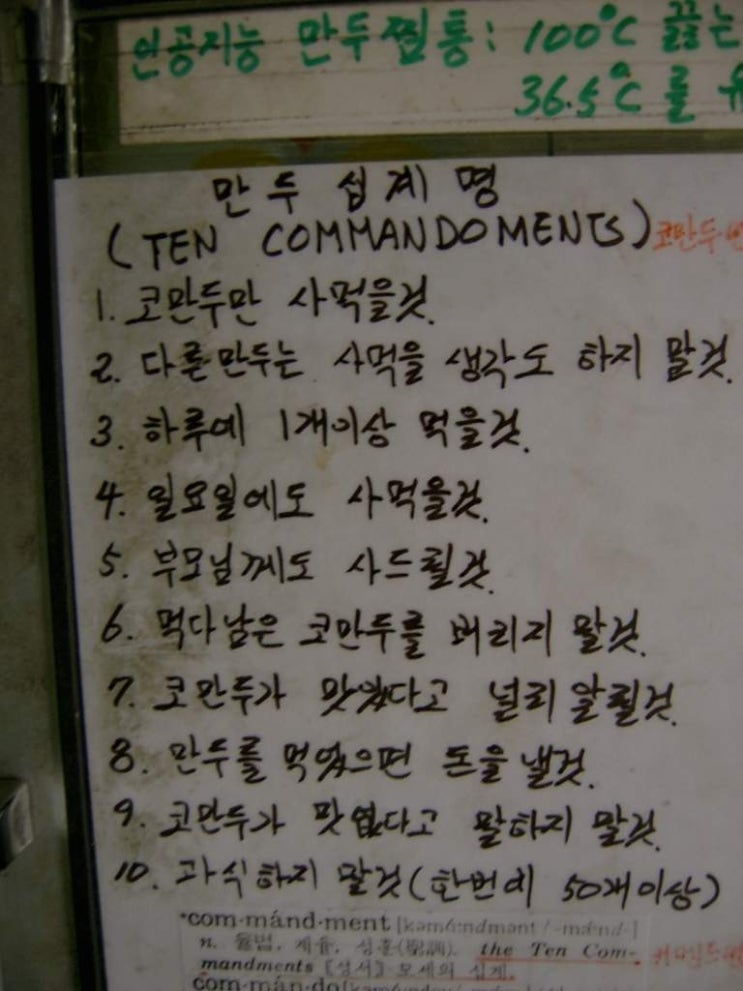 인공지능 만두찜통: 100°C 끓는
36.5°C 를
만두 십계명
(TEN COMMANDOMENTS) 코만두
1. 코만두만 사먹을것.
2. 다른만두는 사먹을 생각도 하지 말것.
3. 하루에 1개이상 먹을것.
4. 일요일에도 사먹을것.
5. 부모님께도 사드릴것.
6. 먹다남은 코만두를 버리지 말것.
7. 코만두가 맛있다고 널리 알릴것.
8. 만두를 먹었으면 돈을 낼것.
9. 코만두가 맛없다고 말하지 말것.
10. 과식하지 말것(한번에 50개이상)
*com·mánd·ment
n. 율법, 계율, 성훈(聖訓). the Ten Com-
mandments 〖성서〗 모세의 십계.
com·man·do